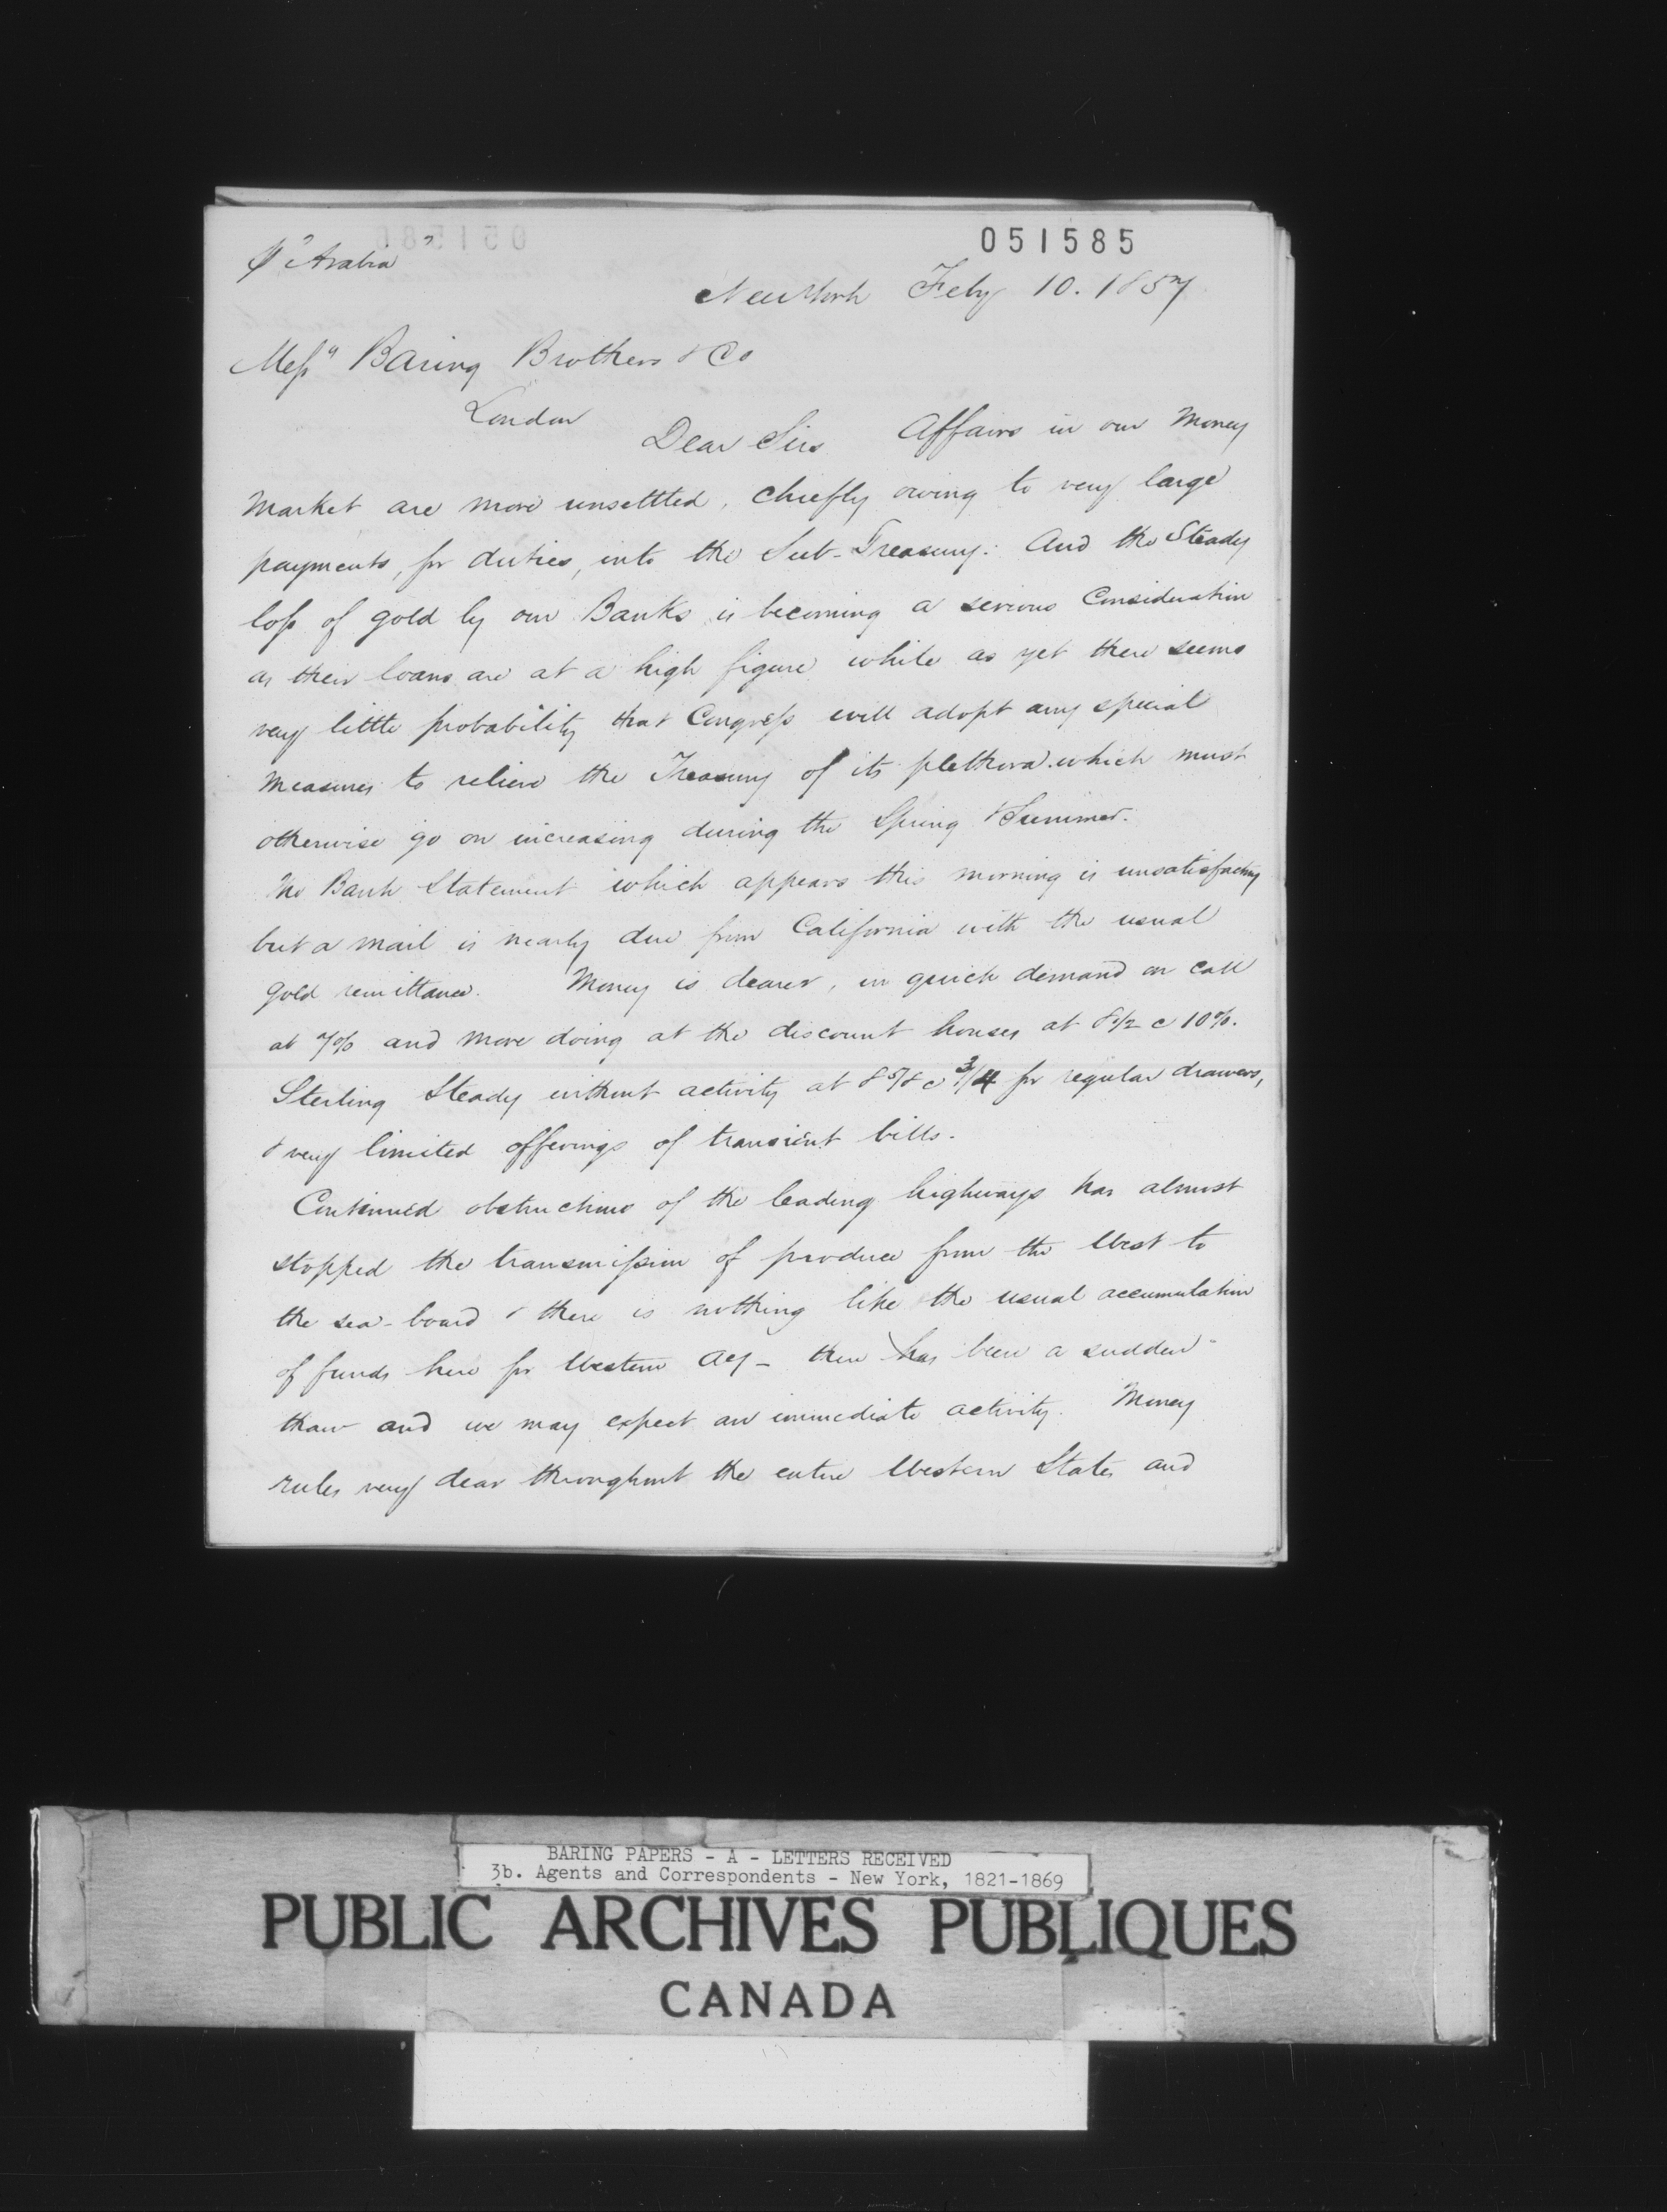 051585
p "Arabia"
New York Feby 10. 1857
Messrs Baring Brothers & Co
London
Dear Sirs Affairs in our Money
Market are more unsettled, chiefly owing to very large
payments, for duties, into the Sub-Treasury: And the Steady
loss of gold by our Banks is becoming a serious Consideration
as their loans are at a high figure while as yet there seems
very little probability that Congress will adopt any special
measures to relieve the Treasury of its plethora which must
otherwise go on increasing during the Spring & Summer.
The Bank Statement which appears this morning is unsatisfactory
but a mail is nearly due from California with the usual
gold remittance. Money is dearer, in quick demand on call
at 7% and more doing at the discount houses at 8 1/2 @ 10%.
Sterling Steady without activity at 8 5/8 @ 3/4 for regular drawers,
& very limited offerings of transient bills.
Continued obstructions of the leading highways has almost
stopped the transmission of produce from the West to
the sea-board & there is nothing like the usual accumulation
of funds here for Western a/c - there has been a sudden
thaw and we may expect an immediate activity. Money
rules very dear throughout the entire Western States and
BARING PAPERS - A - LETTERS RECEIVED
3b. Agents and Correspondents - New York, 1821-1869
PUBLIC ARCHIVES PUBLIQUES
CANADA